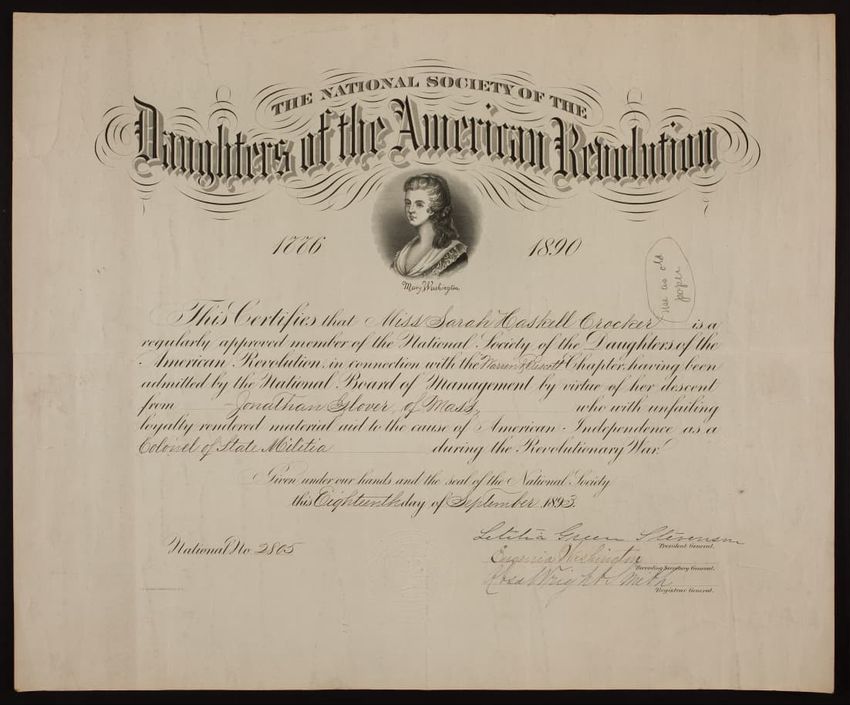 THE NATIONAL SOCIETY OF THE
Daughters of the American Revolution
1776 1890
Mary Washington.
use as old
paper
This Certifies that Miss Sarah Haskell Crocker is a
regularly approved member of the National Society of the Daughters of the
American Revolution, in connection with the Warren & Prescott Chapter, having been
admitted by the National Board of Management by virtue of her descent
from Jonathan Glover, of Mass, who with unfailing
loyalty rendered material aid to the cause of American Independence as a
Colonel of State Militia during the Revolutionary War.
Given under our hands and the seal of the National Society
this Eighteenth day of September 1893.
National No. 2805
Letitia Green Stevenson
President General.
Eugenia Washington
Recording Secretary General.
Rosa Wright Smith
Registrar General.